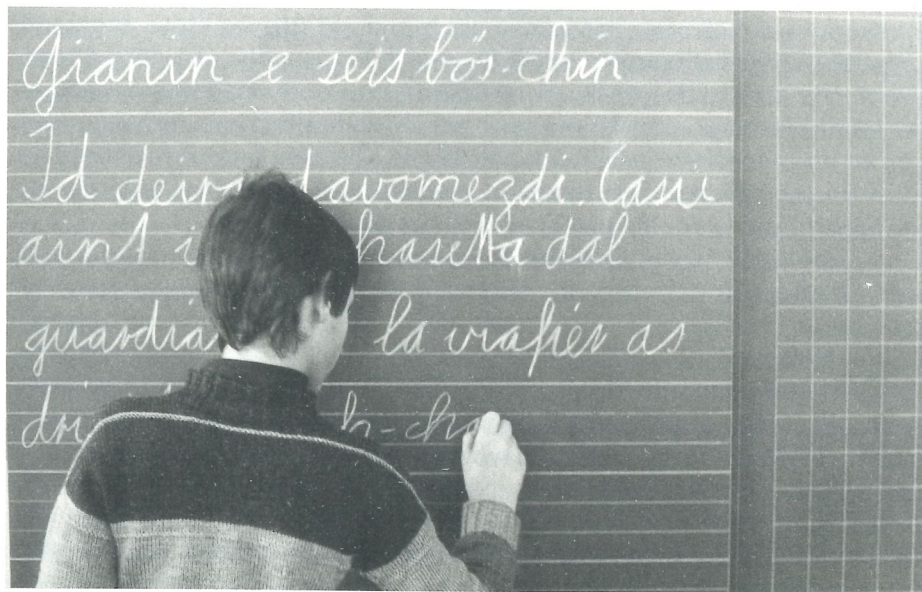 Gianin e seis bös-chin
Id deira davomezdi. Casü
aint i hasetta dal
guardia la viafier as
dri h-cha